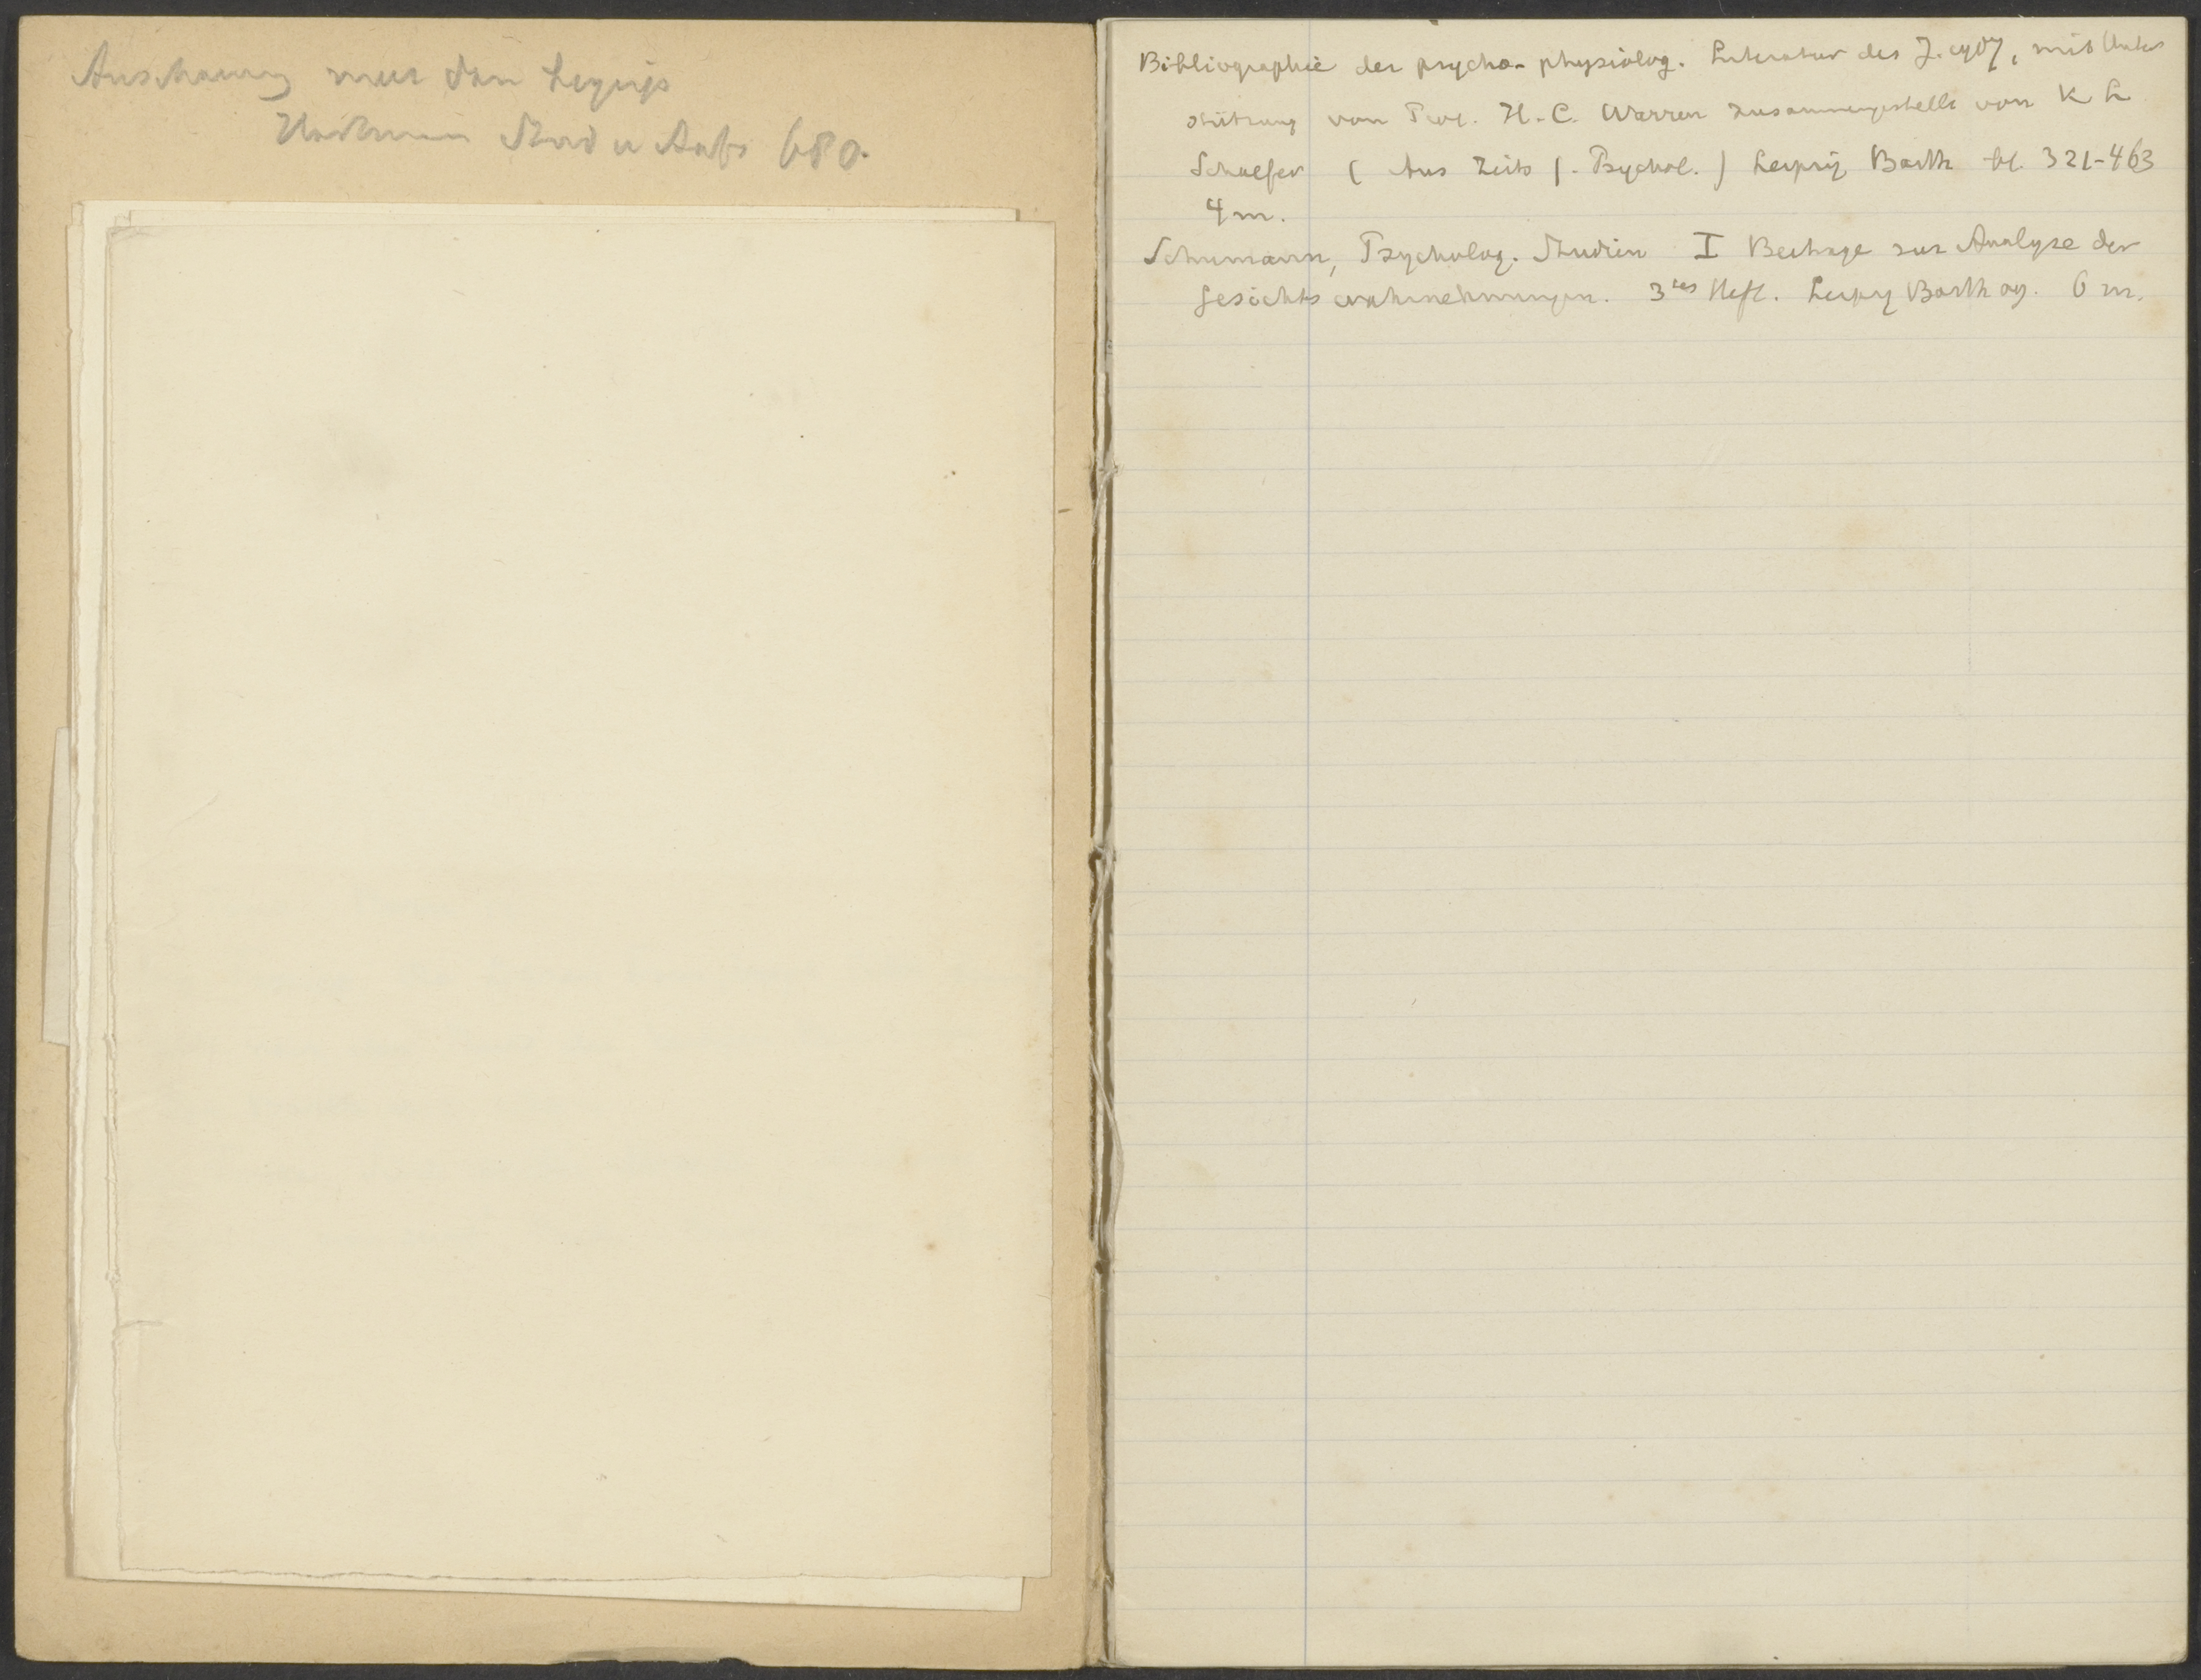 Anschauung meer dan begrip
Stud u Aufs 680.
Bibliographie der psycho-physiolog. Literatur des J. 1907, mit Unter
stützung von Prof. H. C. Warren zusammengestellt von K L
Schaefer (Aus Zeits f. Psychol.) Leipzig Barth bl. 321-463
4 m.
Schumann, Psycholog. Studien I Beitrage zur Analyse der
Gesichtswahrnehmungen. 3tes Heft. Leipzig Barth 09. 6 m.